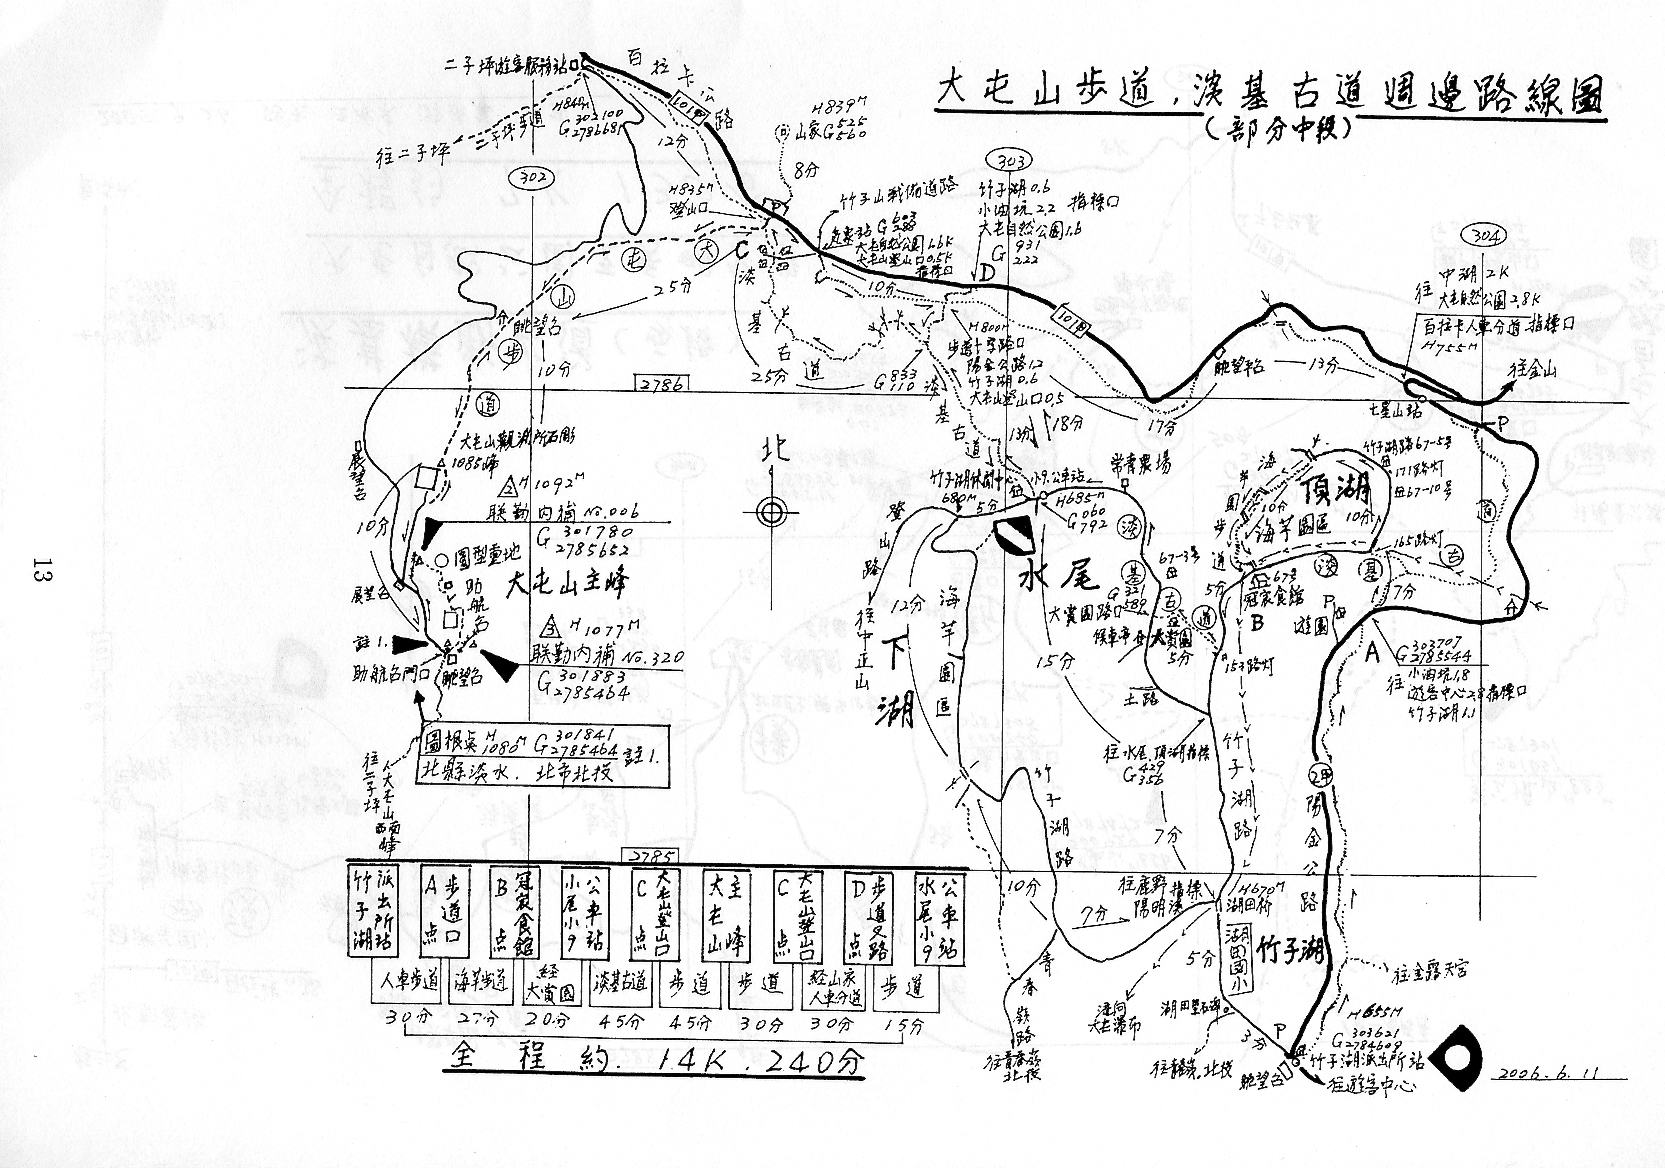 大屯山步道．淡基古道週邊路線圖
(部分中段)
二子坪遊客服務站
百拉卡
公路
101甲
H840M
G302100
2786681
二子坪步道
往二子坪
12分
302
H839M
山家G525
560
8分
H835M
登山口
P
竹子山戰備道路
大屯自然公園1.6K
大屯山登山口0.5K
指標口
303
竹子湖0.6
小油坑2.2 指標口
大屯自然公園1.6
G931
222
D
304
中湖2K
往
大屯自然公園2.8K
百拉卡人車分道指標口
H755M
往金山
七星山站
P
眺望台
13分
17分
101甲
C
大屯山步道
25分
眺望台
10分
淡基古道
25分
10分
G833
110
H800M
步道十字路口
陽金公路1.2
竹子湖0.6
大屯山登山口0.5
淡基古道
13分
18分
2786
北
大屯山觀測所石彫
1085峰
展望台
10分
H1092M
联勤內補No.006
G301780
2785652
圓型重地
助航台
大屯山主峰
展望台
註1.
助航台門口
眺望台
H1077M
联勤內補No.320
G301883
2785464
圖根點H1080M G301841
2785464 註1.
北縣淡水．北市北投
往二子坪
大屯山西南峰
竹子湖休閒中心
680M
5分
小9.公車站
H685M
G060
792
常青農場
登山路
往中正山
12分
水尾
下湖
海芋園區
15分
淡基古道
67-3号
大賞園路口
候車亭
大賞園
5分
土路
153路灯
往水尾．頂湖指標
G429
356
7分
海芋園步道
5分
頂湖
海芋園區
10分
10分
竹子湖路67-5号
171路灯
67-10号
165路灯
67号
冠宸食館
B
淡基古道
7分
P
遊園
A
G303707
2785544
往
小油坑1.8
遊客中心2.8指標口
竹子湖1.1
竹子湖路
2甲
陽金公路
竹子湖路
10分
7分
往鹿野 指標
陽明溪
H670M
湖田橋
湖田國小
竹子湖
5分
湖田墾石碑
3分
P
往青春嶺．北投
青春嶺路
往青春嶺
北投
往金露天宮
H655M
G303621
2784609
竹子湖派出所站
往遊客中心
眺望台
2006.6.11
2785
竹子湖派出所站
A點步道口
B點冠宸食館
小尾小9公車站
C點大屯山登山口
大屯山主峰
C點大屯山登山口
D點步道叉路
水尾小9公車站
人車步道
海芋步道
経大賞園
淡基古道
步道
步道
経山家人車分道
步道
30分 27分 20分 45分 45分 30分 30分 15分
全程約．14K．240分
13